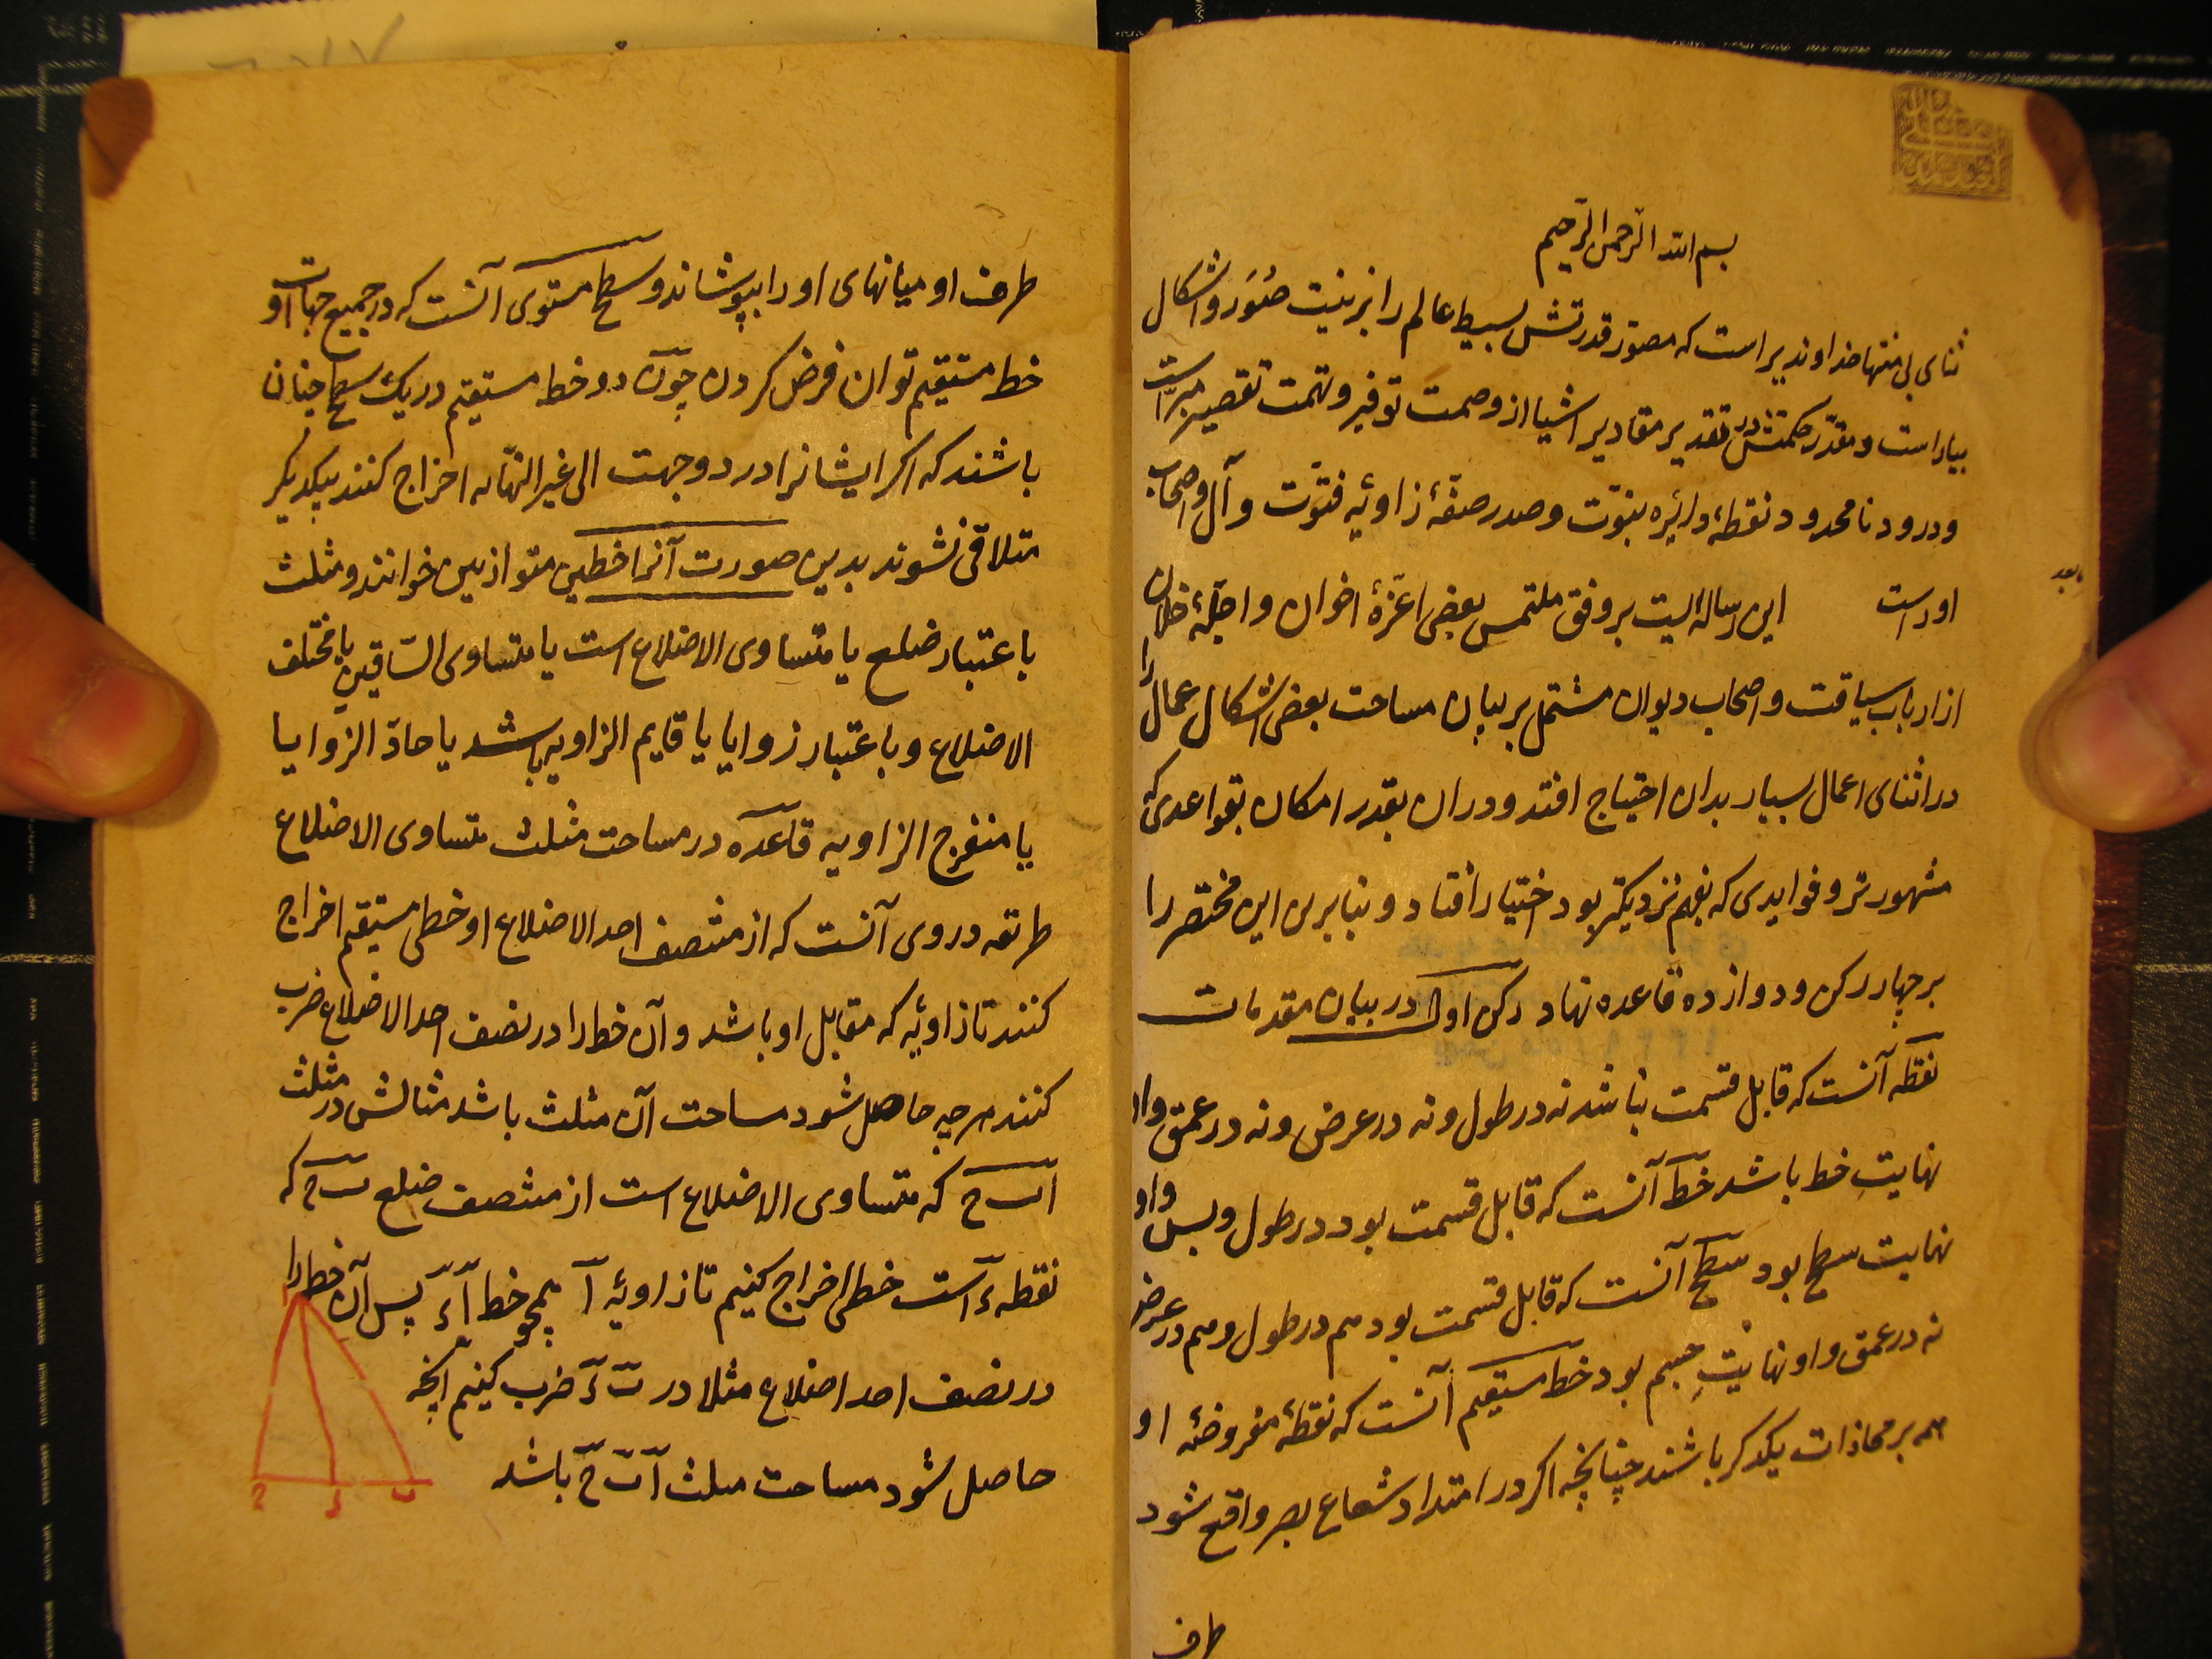 بسم الله الرحمن الرحیم
ثنای بی منتها خداوندیراست که مصوّر قدرتش بسیط عالم را بزینت صُوَر و اشکال
بیاراست و مقدّر حکمتش در تقدیر مقادیر اشیا از وصمت توفیر و تهمت تقصیر مبرّاست
و درود نامحدود نقطهٔ دایره نبوّت و صدر صفّهٔ زاویه فتوّت و آل و اصحاب
اوراست این رساله ایست بر وفق ملتمس بعضی اعزّهٔ اخوان و اجلّهٔ خلان
بعد
از ارباب سیاقت و اصحاب دیوان مشتمل بر بیان مساحت بعضی اشکال عمال را
در اثنای اعمال بسیار بدان احتیاج افتد و دران بقدر امکان بقواعدی که
مشهورتر و فوایدی که بفهم نزدیکتر بود اختیار افتاد و بنابرین این مختصر را
بر چهار رکن و دوازده قاعده نهاد رکن اول در بیان مقدمات
نقطه آنست که قابل قسمت نباشد نه در طول و نه در عرض و نه در عمق و او
نهایتِ خط باشد خط آنست که قابل قسمت بود در طول و بس و او
نهایت سطح بود سطح آنست که قابل قسمت بود هم در طول و هم در عرض
نه در عمق و او نهایتِ جسم بود خط مستقیم آنست که نقطهٔ مفروضه او
همه بر محاذات یکدکر باشند چنانچه اکر در امتداد شعاع بصر واقع شود
طرف
طرف او میانهای او را بپوشاند و سطح مستوی آنست که در جمیع جهات او
خط مستقیم توان فرض کردن چون دو خط مستقیم در یک سطح چنان
باشند که اکر ایشانرا در دو جهت الی غیر النهایه اخراج کنند بیکدیکر
متلاقی نشوند بدین صورت آنرا خطین متوازیین خوانند و مثلث
باعتبار ضلع یا متساوی الاضلاع است یا متساوی السّاقین یا مختلف
الاضلاع و باعتبار زوایا یا قایم الزاویه باشد یا حادّ الزوایا
یا منفرج الزاویه قاعده در مساحت مثلث متساوی الاضلاع
طریقه در وی آنست که از منتصف احد الاضلاع او خطی مستقیم اخراج
کنند تا زاویهٔ که مقابل او باشد و آن خط را در نصف احد الاضلاع ضرب
کنند هرچه حاصل شود مساحت آن مثلث باشد مثالش در مثلث
اب ح که متساوی الاضلاع است از منتصف ضلع ب ح که
نقطه ء است خطی اخراج کنیم تا زاویهٔ آ همچو خط آ ء پس آن خط را
در نصف احد اضلاع مثلا در ب ء ضرب کنیم آنچه
حاصل شود مساحت مثلث آ ب ح باشد
ا
ح ء ب